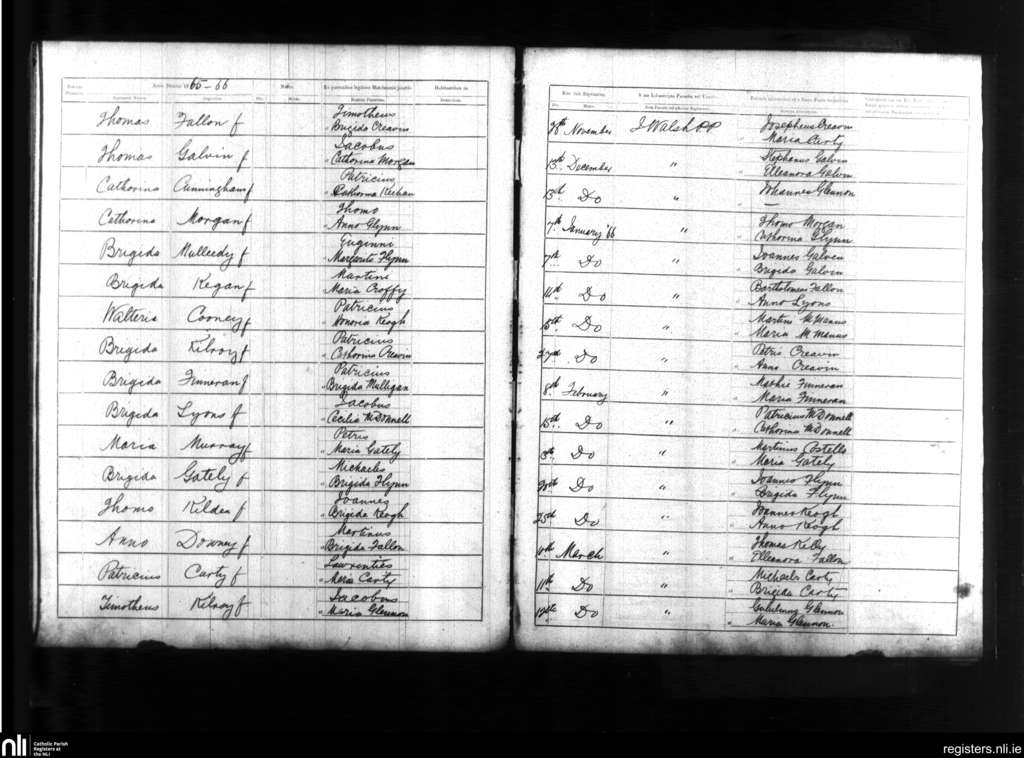 Anno Domini 1865-66
Thomas Fallon f Timotheus
" Brigida Creavin
Thomas Galvin f Jacobus
" Catherina Morgan
Catherina Cunningham f Patricius
" Catherina Keehan
Catherina Morgan f Thomo
" Anno Glynn
Brigida Mulleedy f Euginni
" Margarita Flynn
Brigida Kegan f Martini
" Maria Croffy
Walteria Cooney f Patricius
" Honoria Keogh
Brigida Kilroy f Patricius
" Catherina Creavin
Brigida Finneran f Patricius
Brigida Mulligan
Brigida Lyons f Jacobus
" Cecilia McDonnell
Maria Murray f Petris
" Maria Gately
Brigida Gately f Michaelis
" Brigida Flynn
Thoms Kilden f Joannes
" Brigida Keogh
Anno Downey f Martinus
Brigida Fallon
Patricius Carty f Lawrenties
" Maria Carty
Timotheus Kilroy f Jacobus
" Maria Glennon
28th November J Walsh PP Josephus Creavin
" Maria Carty
13th December " Stephanus Galvin
" Elleanora Galvin
Do " Johannes Glennon
—
7th January '66 " Thomo Morgan
" Catherina Glynn
7th Do " Joannes Galvin
" Brigida Galvin
11th Do " Bartholomeus Fallon
" Anno Lyons
15th Do " Martini McManus
" Maria McManus
27th Do " Petris Creavin
" Anno Creavin
8th February " Mathie Finneran
" Maria Finneran
15th Do " Patricius McDonnell
" Catherina McDonnell
Do " Martinus Costello
" Maria Gately
20th Do " Joannes Flynn
" Brigida Flynn
25th Do " Joannes Keogh
" Anno Keogh
March " Thomas Kelly
" Elleanora Fallon
11th Do " Michaelis Carty
" Brigida Carty
Do " Glennon
" Maria Glennon.
nli Catholic Parish
Registers at
the NLI
registers.nli.ie